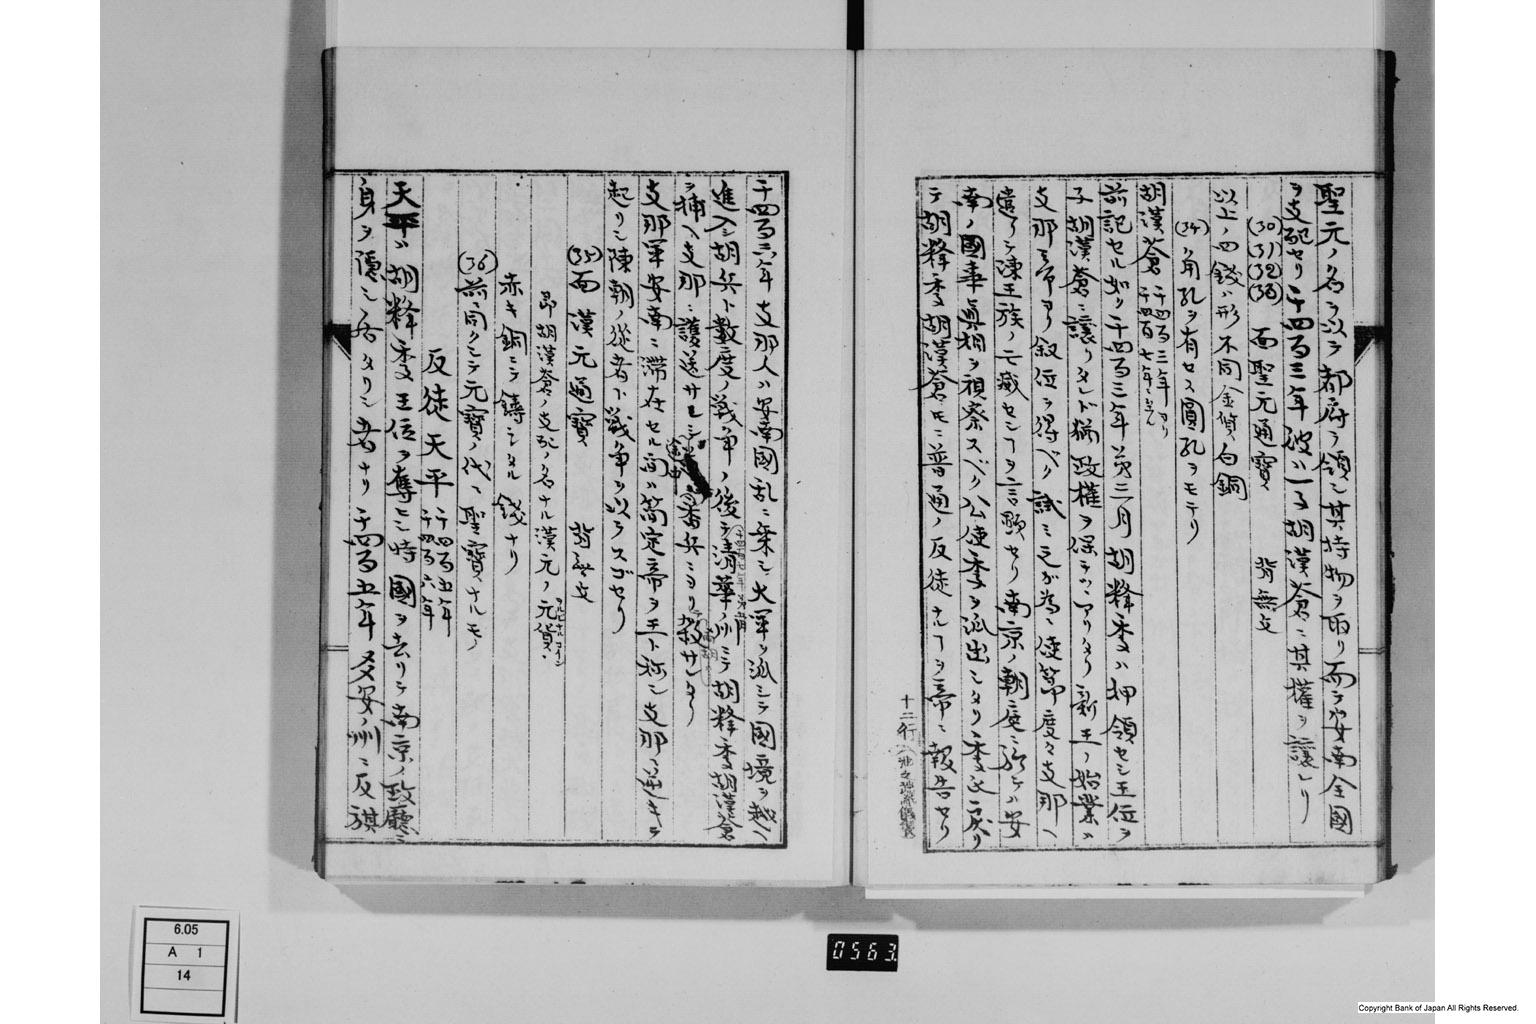 聖元ノ名ヲ以テ都府ヲ領シ其持物ヲ取リ而テ安南全國
ヲ支配セリ千四百三年彼ハ子胡漢蒼ニ其權ヲ讓レリ
(30)(31)(32)(33) 面聖元通寶 背無文
以上ノ四錢ハ形不同金質ノ白銅
(34)ハ角孔ヲ有セス圓孔ヲモテリ
胡漢蒼 千四百三年ヨリ 千四百七年
前記セル如ク千四百三年第三月胡釋季ハ押領セシ王位ヲ
子胡漢蒼ニ讓リタレド猶政權ヲ保テツヽアリタリ新王ノ始業ハ
支那帝ヨリ叙位ヲ得ベク試ミ之ガ為ニ使節度々支那ヘ
遣リテ陳王族ノ亡滅セシヿヲ言顕セリ南京ノ朝廷ニ於テハ安
南ノ國事眞相ヲ視察スベク公使季ヲ派出シタリ季之戻リ
テ胡釋季胡漢蒼氏ニ普通ノ反徒ナルヿヲ帝ニ報告セリ
千四百六年支那人ハ安南國乱ニ乗シ大軍ヲ派シテ國境ヲ越ヘ
進入シ胡兵ト數度ノ戦争ノ後チ清華ノ州ニテ胡釋季胡漢蒼
ヲ捕ヘ支那ニ護送サレシ途中番兵ニヨリ殺サレタリ
支那軍安南ニ滞在セル間ハ簡定帝ヲ王ト称シ支那ニ逆キテ
起リシ陳朝ノ從者ト戰争ヲ以テスゴセリ
(35)面漢元通寶 背無文
即胡漢蒼ノ支配ノ名ナル漢元ノ元貨
赤キ銅ニテ鑄シタル錢ナリ
(36)前ニ同クシテ元寶ノ代ニ聖寶ナルモノ
反徒天平 千四百五年 千四百六年
天平ハ胡釋季王位ヲ奪ヒシ時國ヲ去リテ南京ノ政廳ニ
身ヲ隠シ居タリシ者ナリ千四百五年安ノ州ニ反旗
0563
6.05
A 1
14
Copyright Bank of Japan All Rights Reserved.